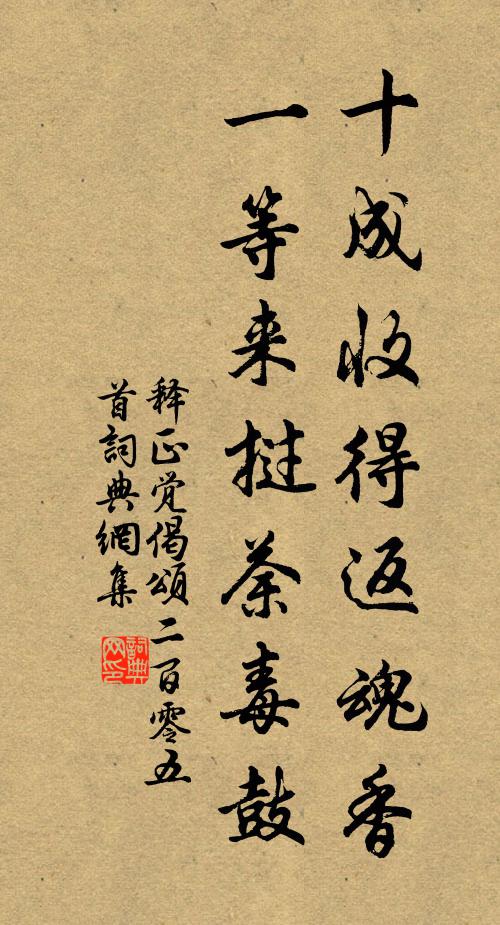 十成收得返魂香
一等来撾荼毒鼓
释正觉偈頌二百零五
首詞典網集
詞典
网印